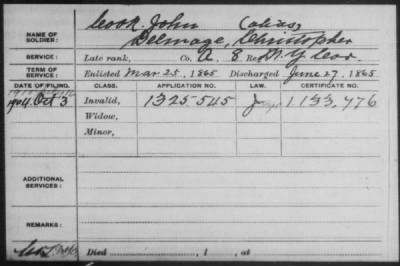 Cook, John (alias)
NAME OF SOLDIER: Delmage, Christopher
SERVICE: Late rank, Co. A, 8 Reg't N.Y. Cav.
TERM OF SERVICE: Enlisted Mar 25, 1865 Discharged June 27, 1865
DATE OF FILING. CLASS. APPLICATION NO. LAW. CERTIFICATE NO.
1904 Oct 3 Invalid, 1325545 1.133,776
Widow,
Minor,
ADDITIONAL SERVICES:
REMARKS:
Died , 1 , at